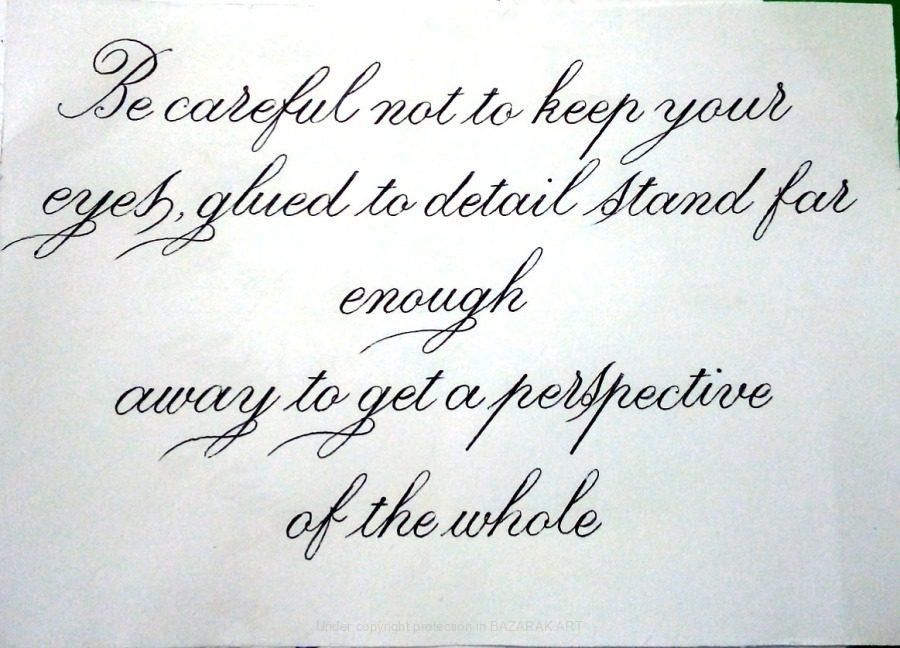 Be careful not to keep your
eyes, glued to detail stand far
enough
away to get a perspective
of the whole
Under copyright protection in BAZARAK ART